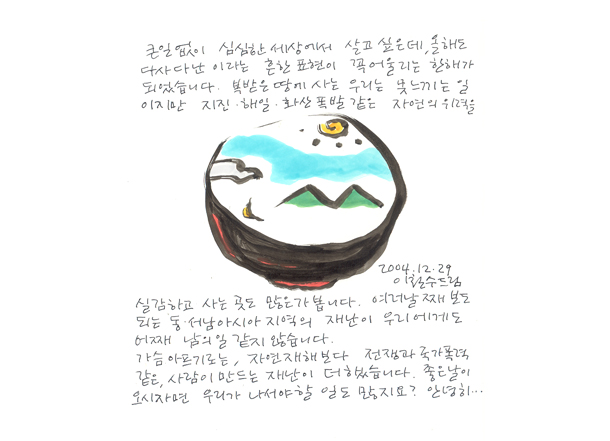 큰일 없이 심심한 세상에서 살고 싶은데, 올해도
다사다난 이라는 흔한 표현이 꼭 어울리는 한해가
되었습니다. 복받은 땅에 사는 우리는 못느끼는 일
이지만 지진·해일·화산폭발 같은 자연의 위력을
2004.12.29
이철수드림
실감하고 사는 곳도 많은가 봅니다. 여러날 째 보도
되는 동·서남아시아 지역의 재난이 우리에게도
어째 남의 일 같지 않습니다.
가슴 아프기로는, 자연재해보다 전쟁과 국가폭력
같은, 사람이 만드는 재난이 더 했습니다. 좋은날이
오시자면 우리가 나서야할 일도 많지요? 안녕히...